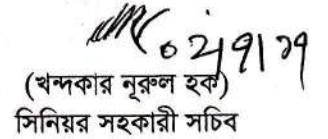 ০২/৭/১৭
(খন্দকার নূরুল হক)
সিনিয়র সহকারী সচিব